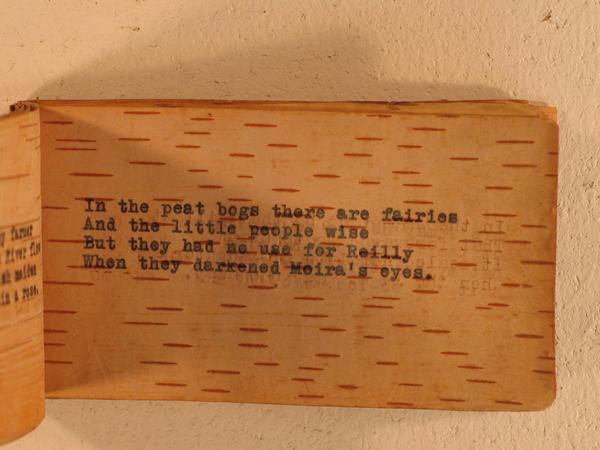 y farmer
River five
sh maiden
in a rose.
In the peat bogs there are fairies
And the little people wise
But they had no use for Reilly
When they darkened Moira's eyes.